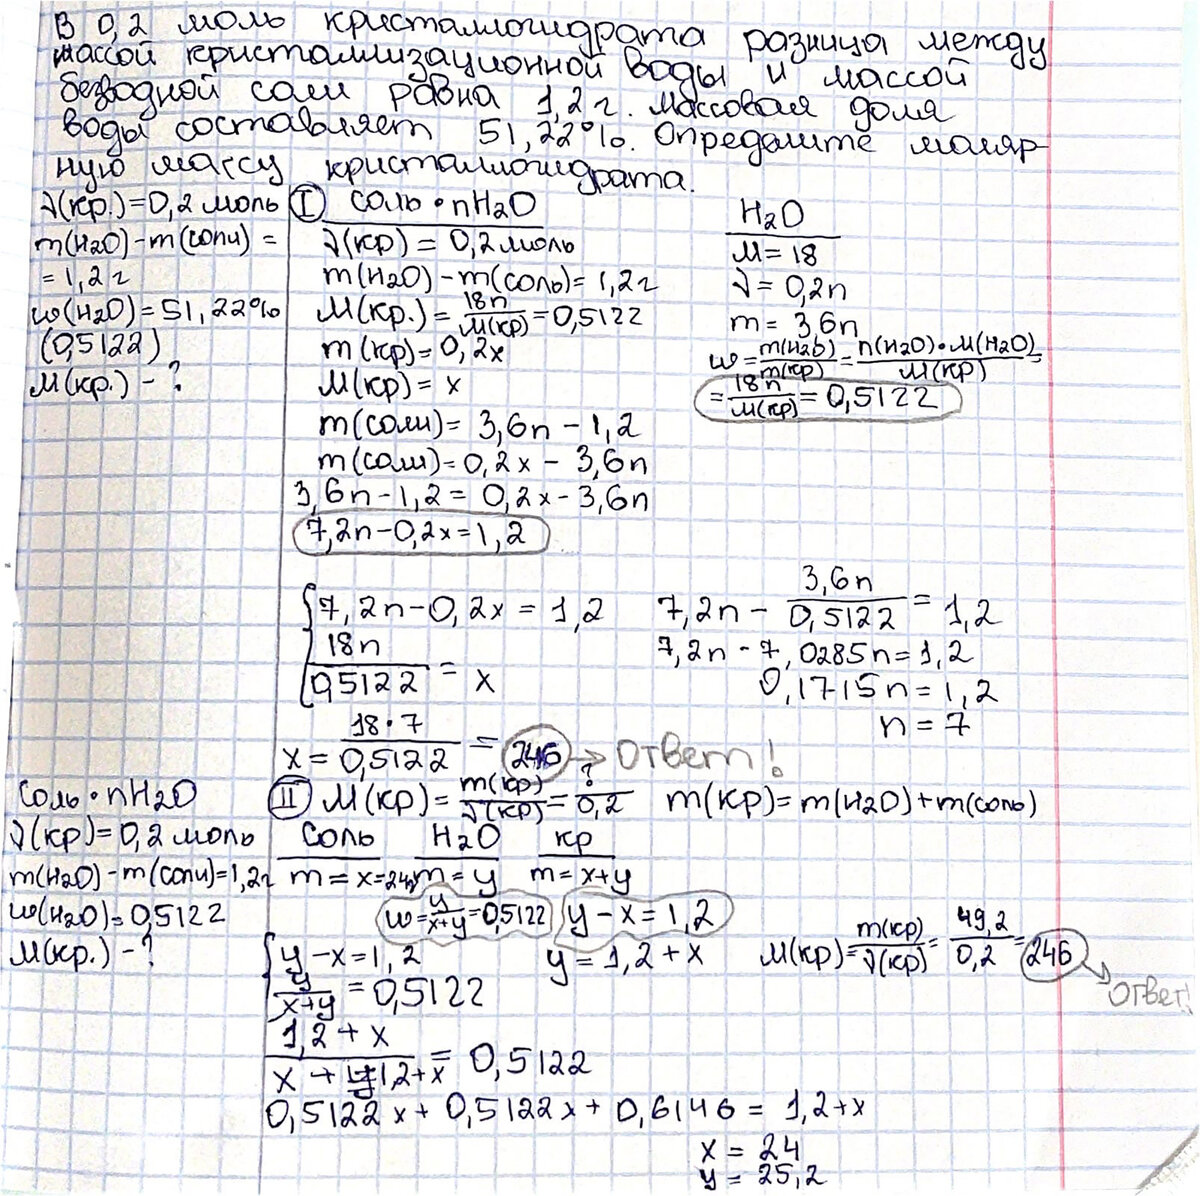 В 0,2 моль кристаллогидрата разница между
массой кристаллизационной воды и массой
безводной соли равна 1,2 г. Массовая доля
воды составляет 51,22%. Определите моляр-
ную массу кристаллогидрата.
ν(кр.)=0,2 моль
m(H₂O)-m(соли) =
= 1,2 г
ω(H₂O)=51,22%
(0,5122)
M(кр.) - ?
I соль • nH₂O
ν(кр) = 0,2 моль
m(H₂O)-m(соль)=1,2 г
M(кр.) = 18n/M(кр) = 0,5122
m(кр)=0,2x
M(кр) = x
m(соли)= 3,6n - 1,2
m(соли)=0,2x - 3,6n
3,6n-1,2= 0,2x-3,6n
7,2n-0,2x=1,2
H₂O
M=18
ν= 0,2n
m= 3,6n
ω= m(H₂O)/m(кр) = n(H₂O)•M(H₂O)/M(кр) =
= 18n/M(кр) = 0,5122
{7,2n-0,2x = 1,2
18n/0,5122 = x
x = 18•7/0,5122 = 246 → Ответ!
7,2n - 3,6n/0,5122 = 1,2
7,2n - 7,0285n=1,2
0,1715n=1,2
n=7
соль•nH₂O
ν(кр)=0,2 моль
m(H₂O)-m(соли)=1,2г
ω(H₂O)=0,5122
M(кр.) - ?
II M(кр)= m(кр)/ν(кр) = ?/0,2 m(кр)=m(H₂O)+m(соль)
соль H₂O кр
m=x=24г m=y m=x+y
ω= y/x+y =0,5122 y-x=1,2
{y-x=1,2 y=1,2+x
y/x+y = 0,5122
1,2+x/x+1,2+x = 0,5122
0,5122x+0,5122x+0,6146 = 1,2+x
x = 24
y = 25,2
M(кр)= m(кр)/ν(кр) = 49,2/0,2 = 246
Ответ!